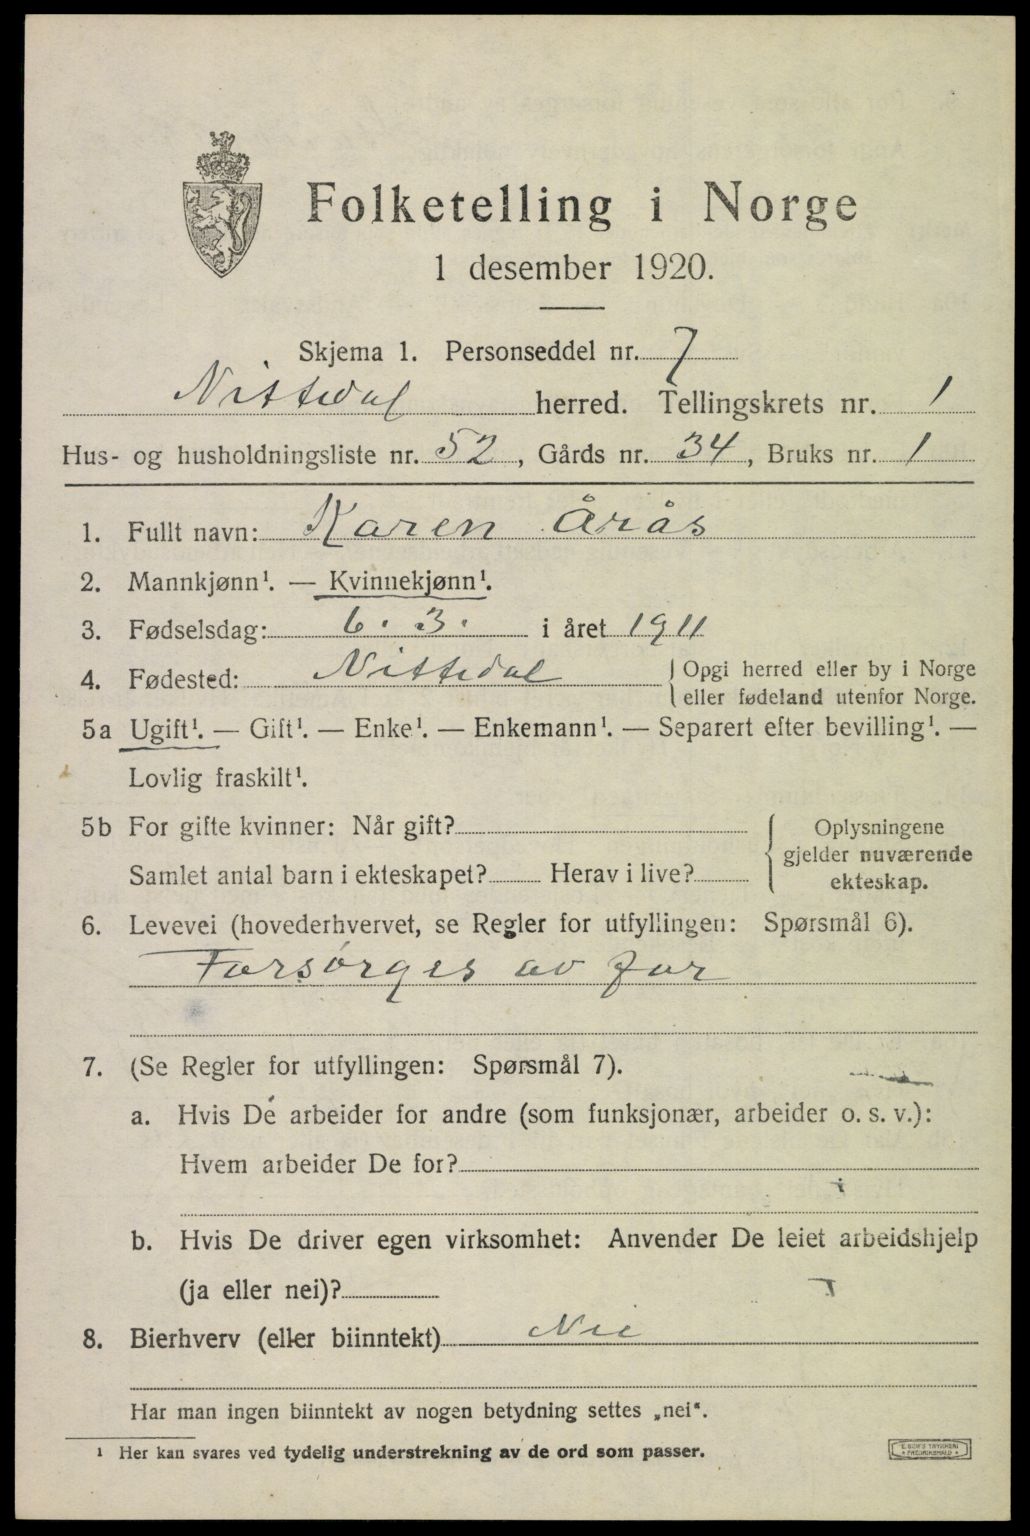 Folketelling i Norge
1 desember 1920.
Skjema 1. Personseddel nr. 7
Nittedal herred. Tellingskrets nr. 1
Hus- og husholdningsliste nr. 52, Gårds nr. 34, Bruks nr. 1
1. Fullt navn: Karen Årås
2. Mannkjønn¹. — Kvinnekjønn¹.
3. Fødselsdag: 6. 3. i året 1911
4. Fødested: Nittedal { Opgi herred eller by i Norge
eller fødeland utenfor Norge.
5a Ugift¹. — Gift¹. — Enke¹. — Enkemann¹. — Separert efter bevilling¹. —
Lovlig fraskilt¹.
5b For gifte kvinner: Når gift? { Oplysningene
gjelder nuværende
Samlet antal barn i ekteskapet? Herav i live?
ekteskap.
6. Levevei (hovederhvervet, se Regler for utfyllingen: Spørsmål 6).
Forsørges av far
7. (Se Regler for utfyllingen: Spørsmål 7).
a. Hvis De arbeider for andre (som funksjonær, arbeider o. s. v.):
Hvem arbeider De for?
b. Hvis De driver egen virksomhet: Anvender De leiet arbeidshjelp
(ja eller nei)?
8. Bierhverv (eller biinntekt) Nei
Har man ingen biinntekt av nogen betydning settes „nei“.
¹ Her kan svares ved tydelig understrekning av de ord som passer.